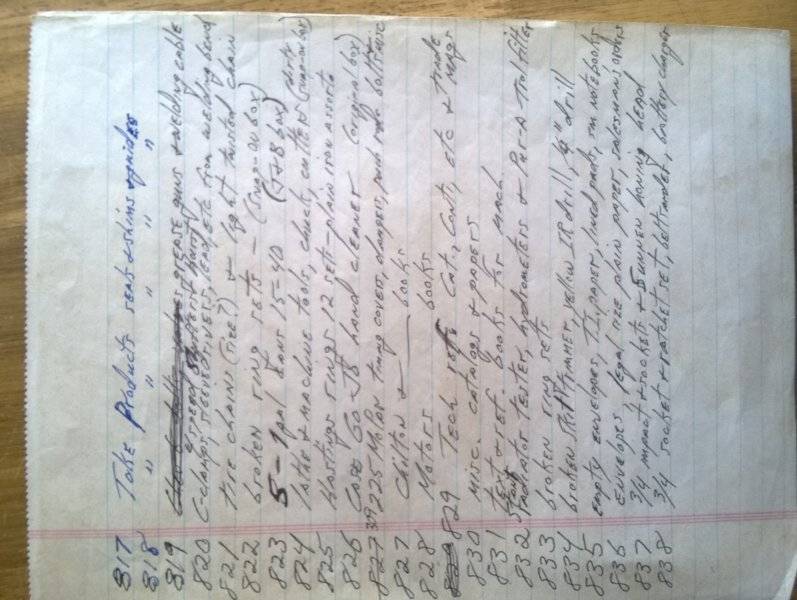 817 Take Products seats & shims & guides
818 " " " " " "
819 grease guns & welding cable
4 steel starters
820 C clamps, sleeves, vers, lead, etc from welding bench
821 tire chains (size?) + light twisted chain
822 broken ring sets - (Snap-on box)
823 5-1 gal cans 15-40 (T&B box)
824 lathe & machine tools, chuck, cutters (Snap-on box)
825 Hastings rings 12 sets - plain iron assorts
826 Case GoJo hand cleaner (original box)
827 39 225 Mopar timing cover, damper, push rods bolts misc
827 Chilton & books
828 Motors books
829 Tech sets Cat., Cont., etc & trade mags
830 misc. catalogs & papers
831 text & ref. books for mach.
832 radiator tester, hydrometers & Pur-A-Trol filter
833 broken ring sets
834 broken trimmer, yellow IR drill, 1/2" drill
835 empty envelopes, paper, lined pads, sm notebooks
836 envelopes, legal size plain paper, salesmans orders
837 3/4 impact & sockets & Sunnen honing head
838 3/4 socket & ratchet set, belt sander, battery charger